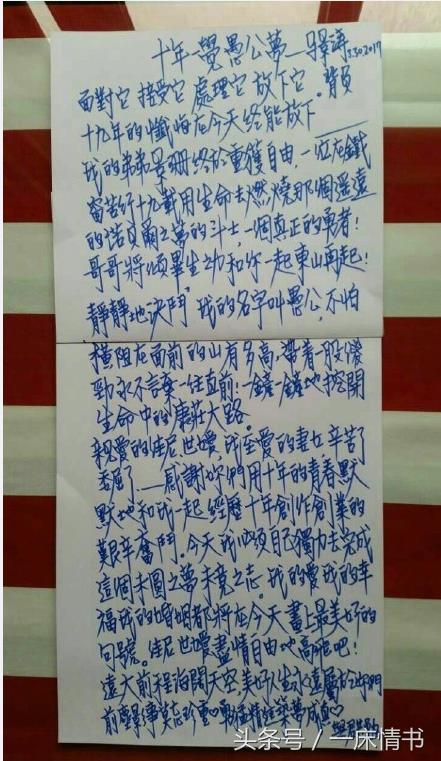 十年一覺愚公夢—驛濤 3.30.2017
面對它 接受它 處理它 放下它。背負
十九年的懺悔在今天終能放下
我的弟弟景珊終於重獲自由，一位在鐵
窗苦行十九載用生命去燃燒那個遥遠
的諾貝爾之夢的斗士，一個真正的勇者！
哥哥將傾畢生之力和你一起東山再起！
靜靜地決鬥，我的名字叫愚公，不怕
橫阻在面前的山有多高，帶着一股傻
勁永不言棄一往直前，一鏟一鏟地挖開
生命中的康莊大路。
親愛的佳尼世嬡，我至愛的妻女，辛苦了
委屈了——感謝你們用十年的青春默
默地和我一起經歷十年創作創業的
艱辛奮鬥。今天我必須自己獨力去完成
這個未圓之夢未竟之志。我的愛我的幸
福我的婚姻都將在今天畫上最美好的
句號。佳尼世嬡盡情自由地高飛吧！
遠大前程海闊天空，美好人生永遠屬於妳們
前塵 莫忘珍重 築夢成
头条号／一床情书